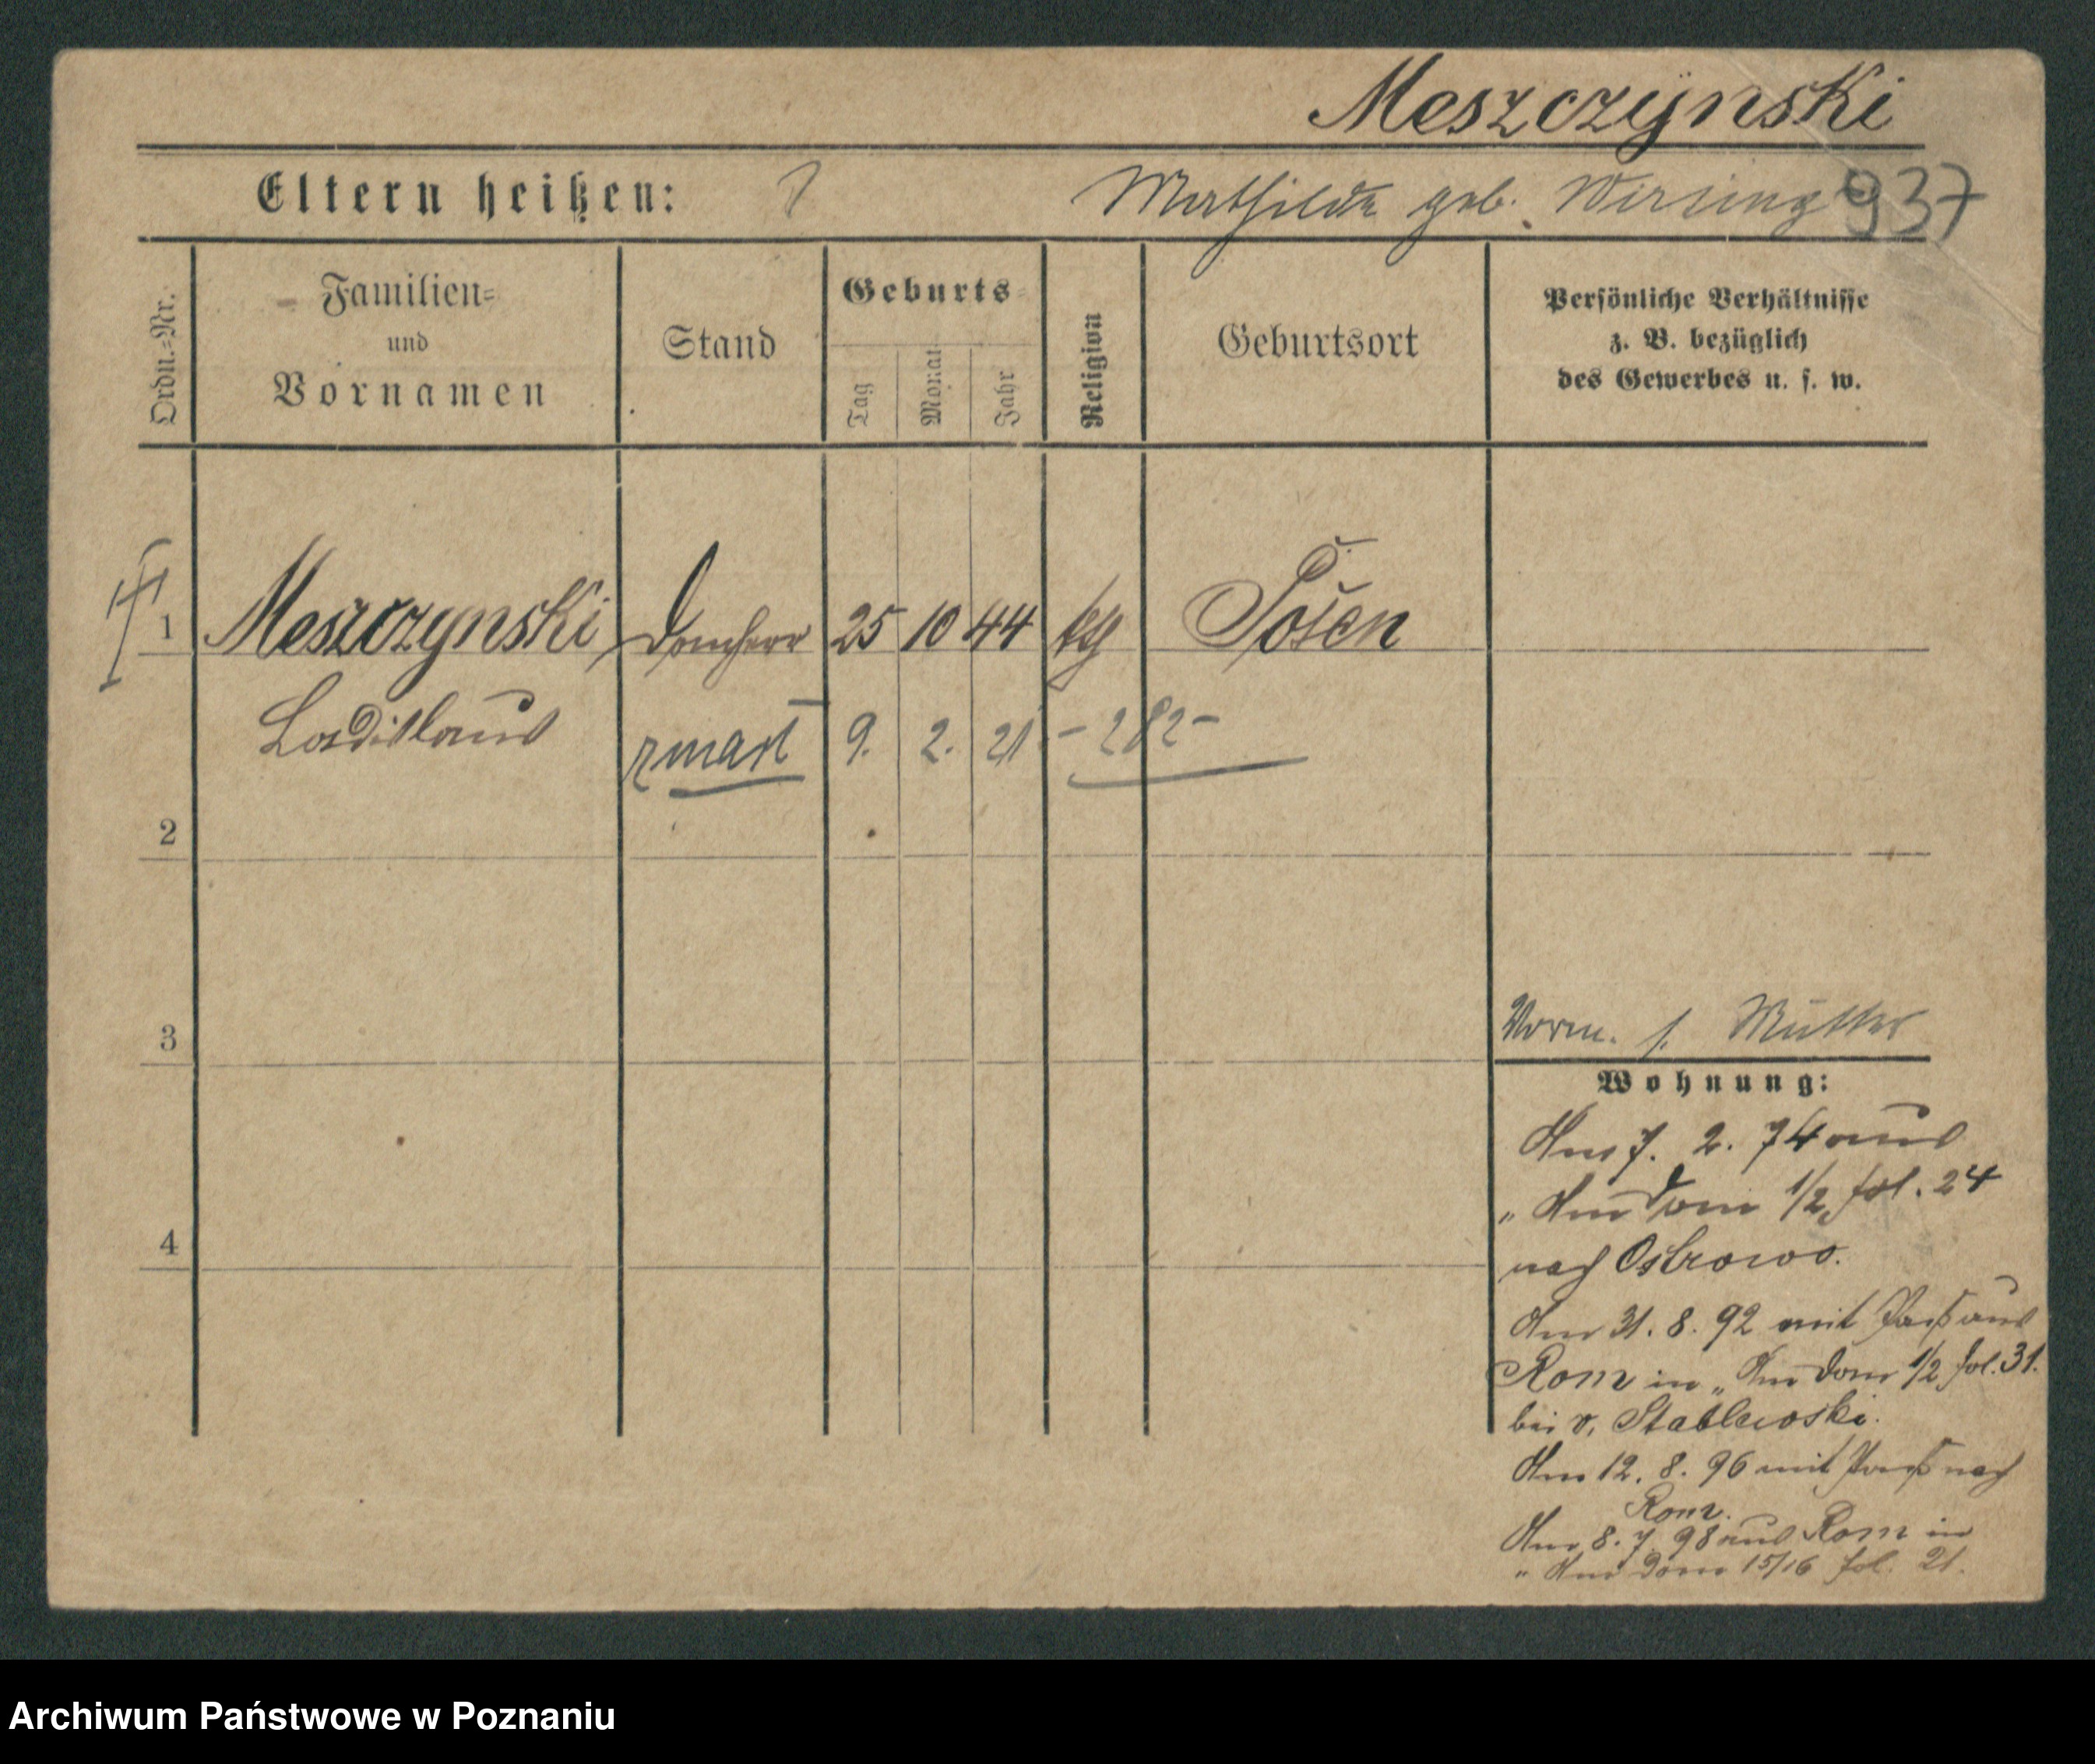 Meszczynski
Eltern heißen: ? Mathilde geb. Wersing 937
Ordn.=Nr.
Familien=
und
Vornamen
Stand
Geburts=
Tag
Monat
Jahr
Religion
Geburtsort
Persönliche Verhältnisse
z. B. bezüglich
des Gewerbes u. s. w.
1 Meszczynski Domherr 25 10 44 kth Posen
Ladislaus zmarł 9. 2. 21 - 282 -
2
3
Vorm. s. Mutter
Wohnung:
Am 7. 2. 74 aus
„ Am Dom 1/2 fol. 24
nach Ostrowo.
4
Am 31. 8. 92 mit Paß aus
Rom in „ Am Dom 1/2 fol. 31.
bei v. Stablewski.
Am 12. 8. 96 mit Paß nach
Rom.
Am 8. 7. 98 aus Rom in
„ Am Dom 15/16 fol. 21.
Archiwum Państwowe w Poznaniu